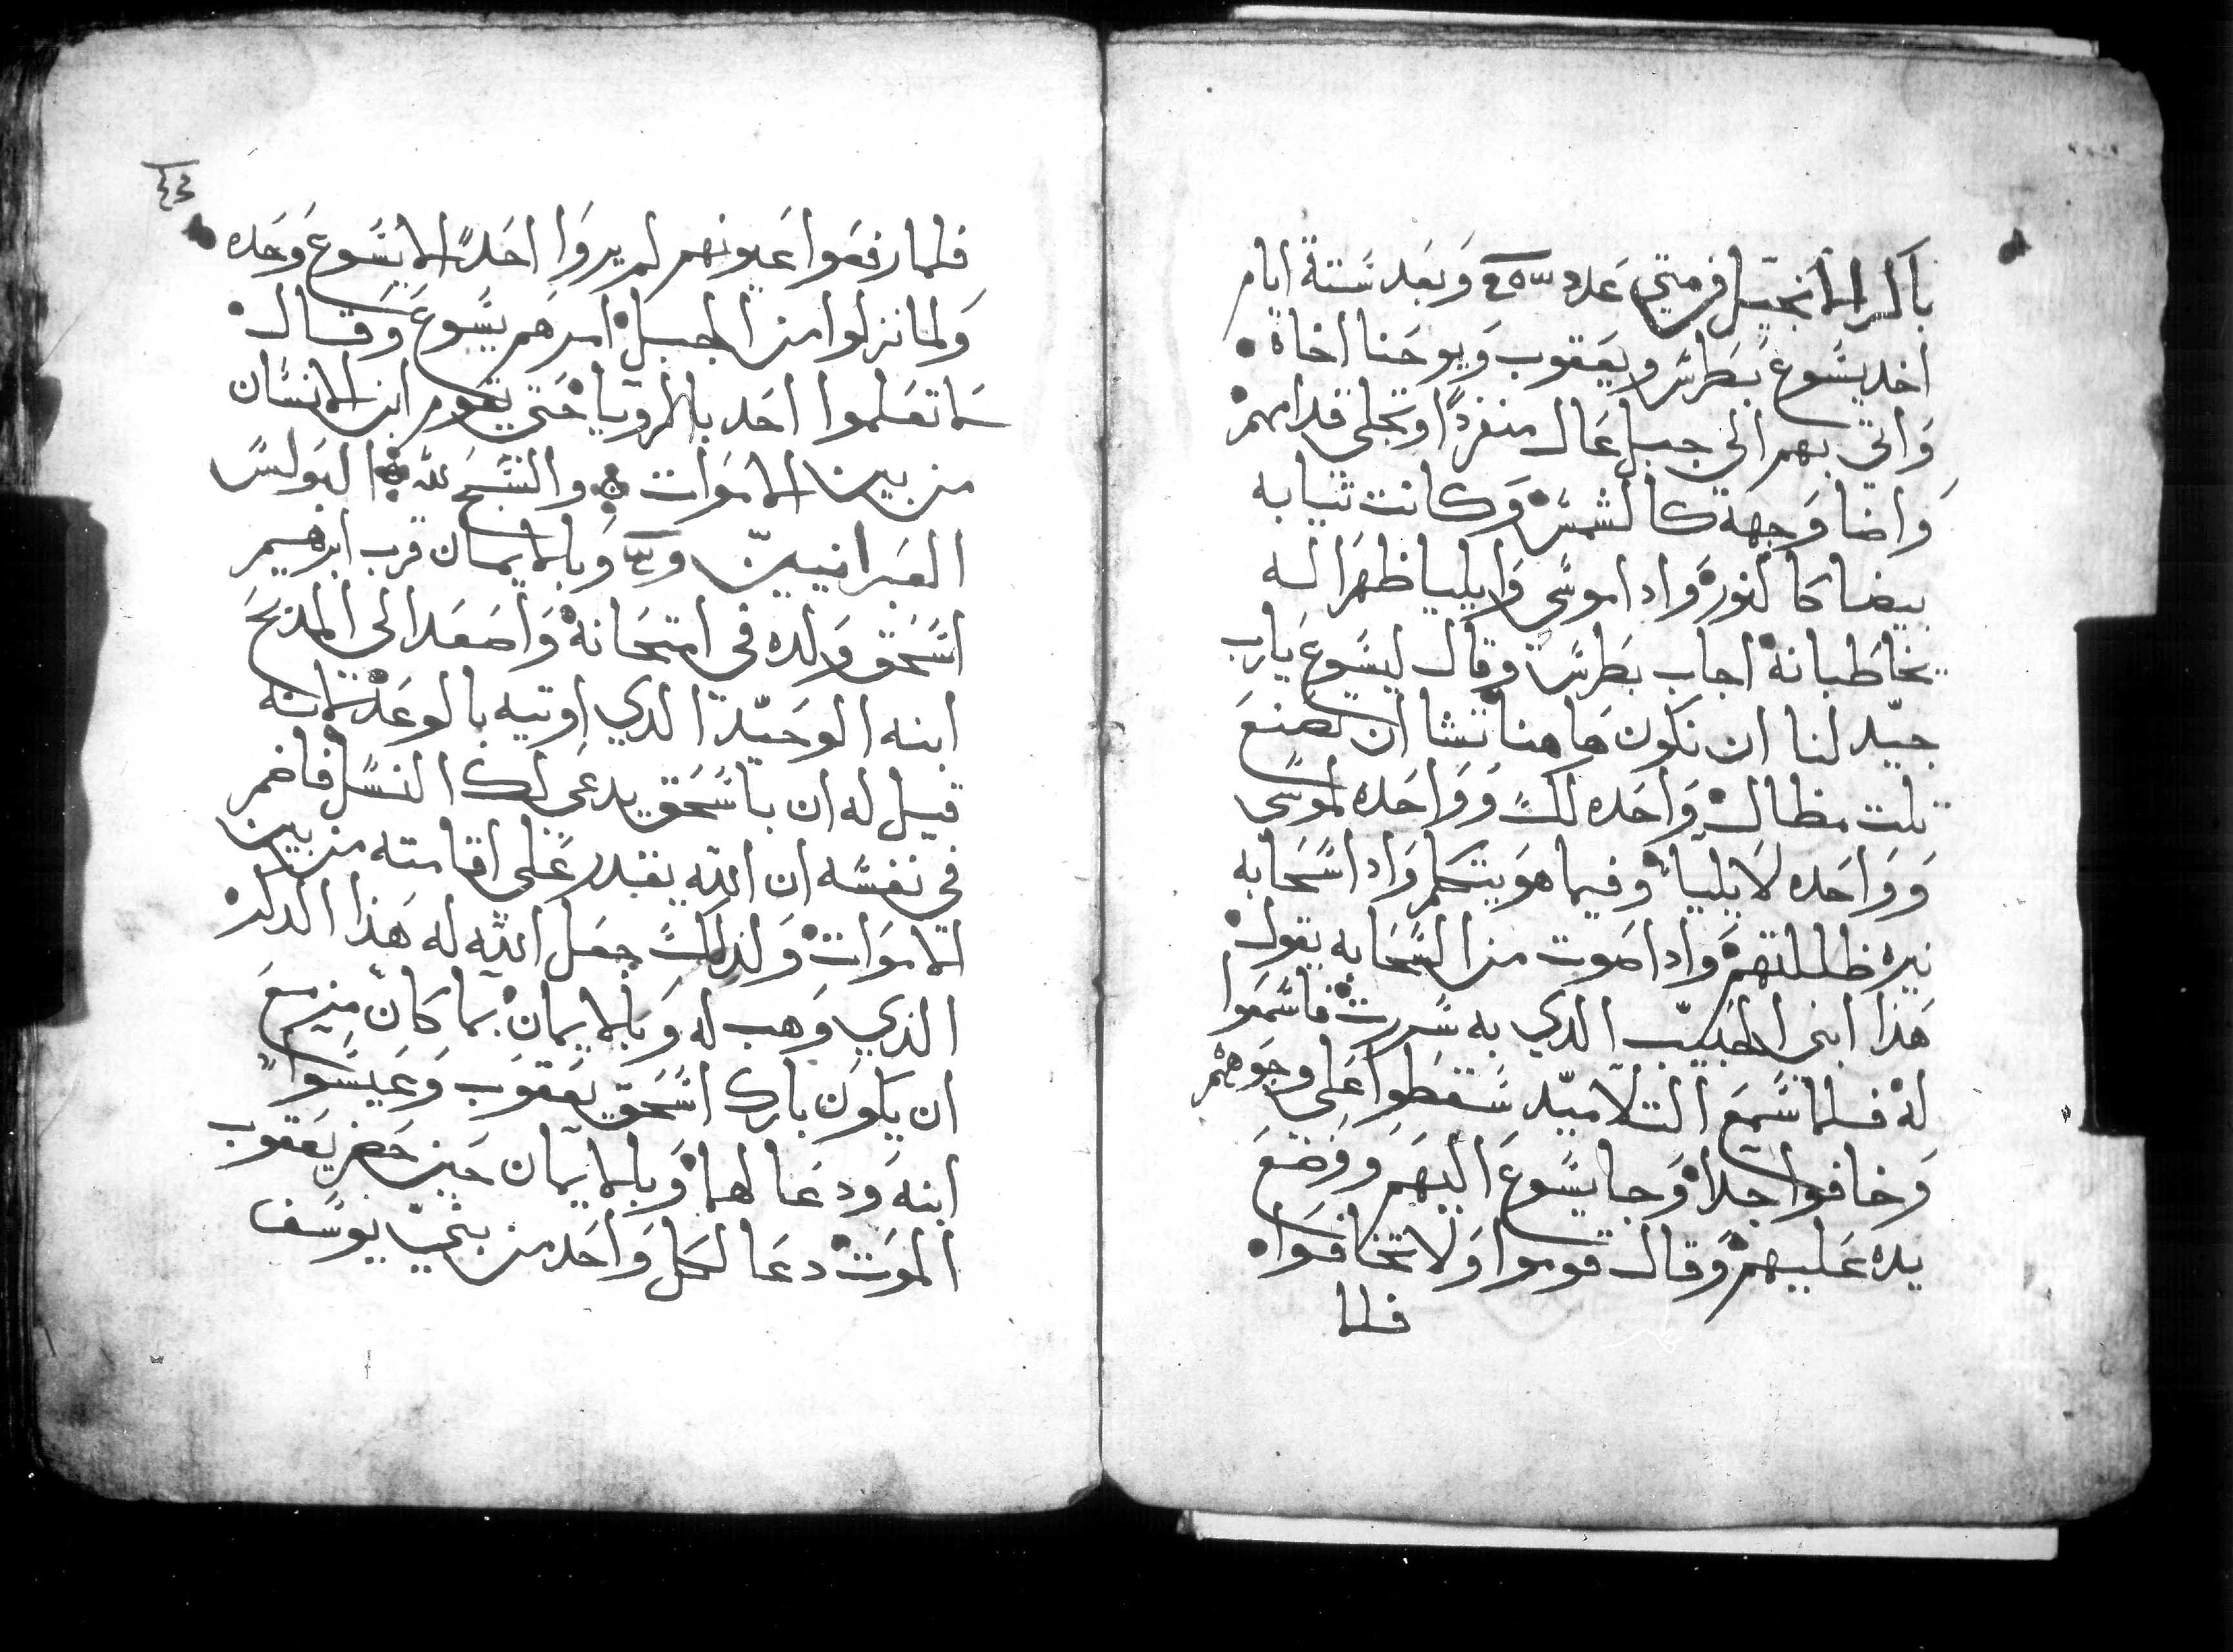 باكر الانجيل فر متي عدد وبعد ستة ايام
اخد يسوع بطرس ويعقوب ويوحنا اخاه
واتي بهم الي جبل عال منفردا وتجلي قدامهم
واضا وجهه كالشمس وكانت تيابه
بيضا كالنور وادا موسي وايليا ظهرا له
يخاطبانه اجاب بطرس وقال ليسوع يارب
جيد لنا ان نكون هاهنا تشا ان نصنع
تلت مظال واحده لك وواحده لموسي
وواحده لايليا وفيما هو يتكلم وادا سحابه
نيره ظللتهم وادا صوت من السحابه يقول
هذا ابني الحبيب الدي به سررت فاسمعوا
له فلما سمع التلاميد سقطوا علي وجوههم
وخافوا جدا وجا يسوع اليهم ووضع
يده عليهم وقال قوموا ولا تخافوا
فلما
فلما رفعوا عيونهم لم يروا احدا الا يسوع وحده
ولما نزلوا من الجبل امرهم يسوع وقال
لا تعلموا احد بالرويا حتي يقوم ابن الانسان
من بين الاموات والسبح لله البولس
العبرانيين وبالايمان قرب ابرهيم
اسحق ولده في امتحانه واصعد الي المدبح
ابنه الوحيد الدي اوتيه بالوعد لانه
قيل له ان باسحق يدعي لك النسل فاضمر
في نفسه ان الله يقدر علي اقامته من بين
الاموات ولذلك جعل الله له هذا الدكر
الذي وهب له وبالايمان بما كان مزمع
ان يكون بارك اسحق يعقوب وعيسوا
ابنه ودعا لهما وبالايمان حين حضر يعقوب
الموت دعا لكل واحد من بني يوسف